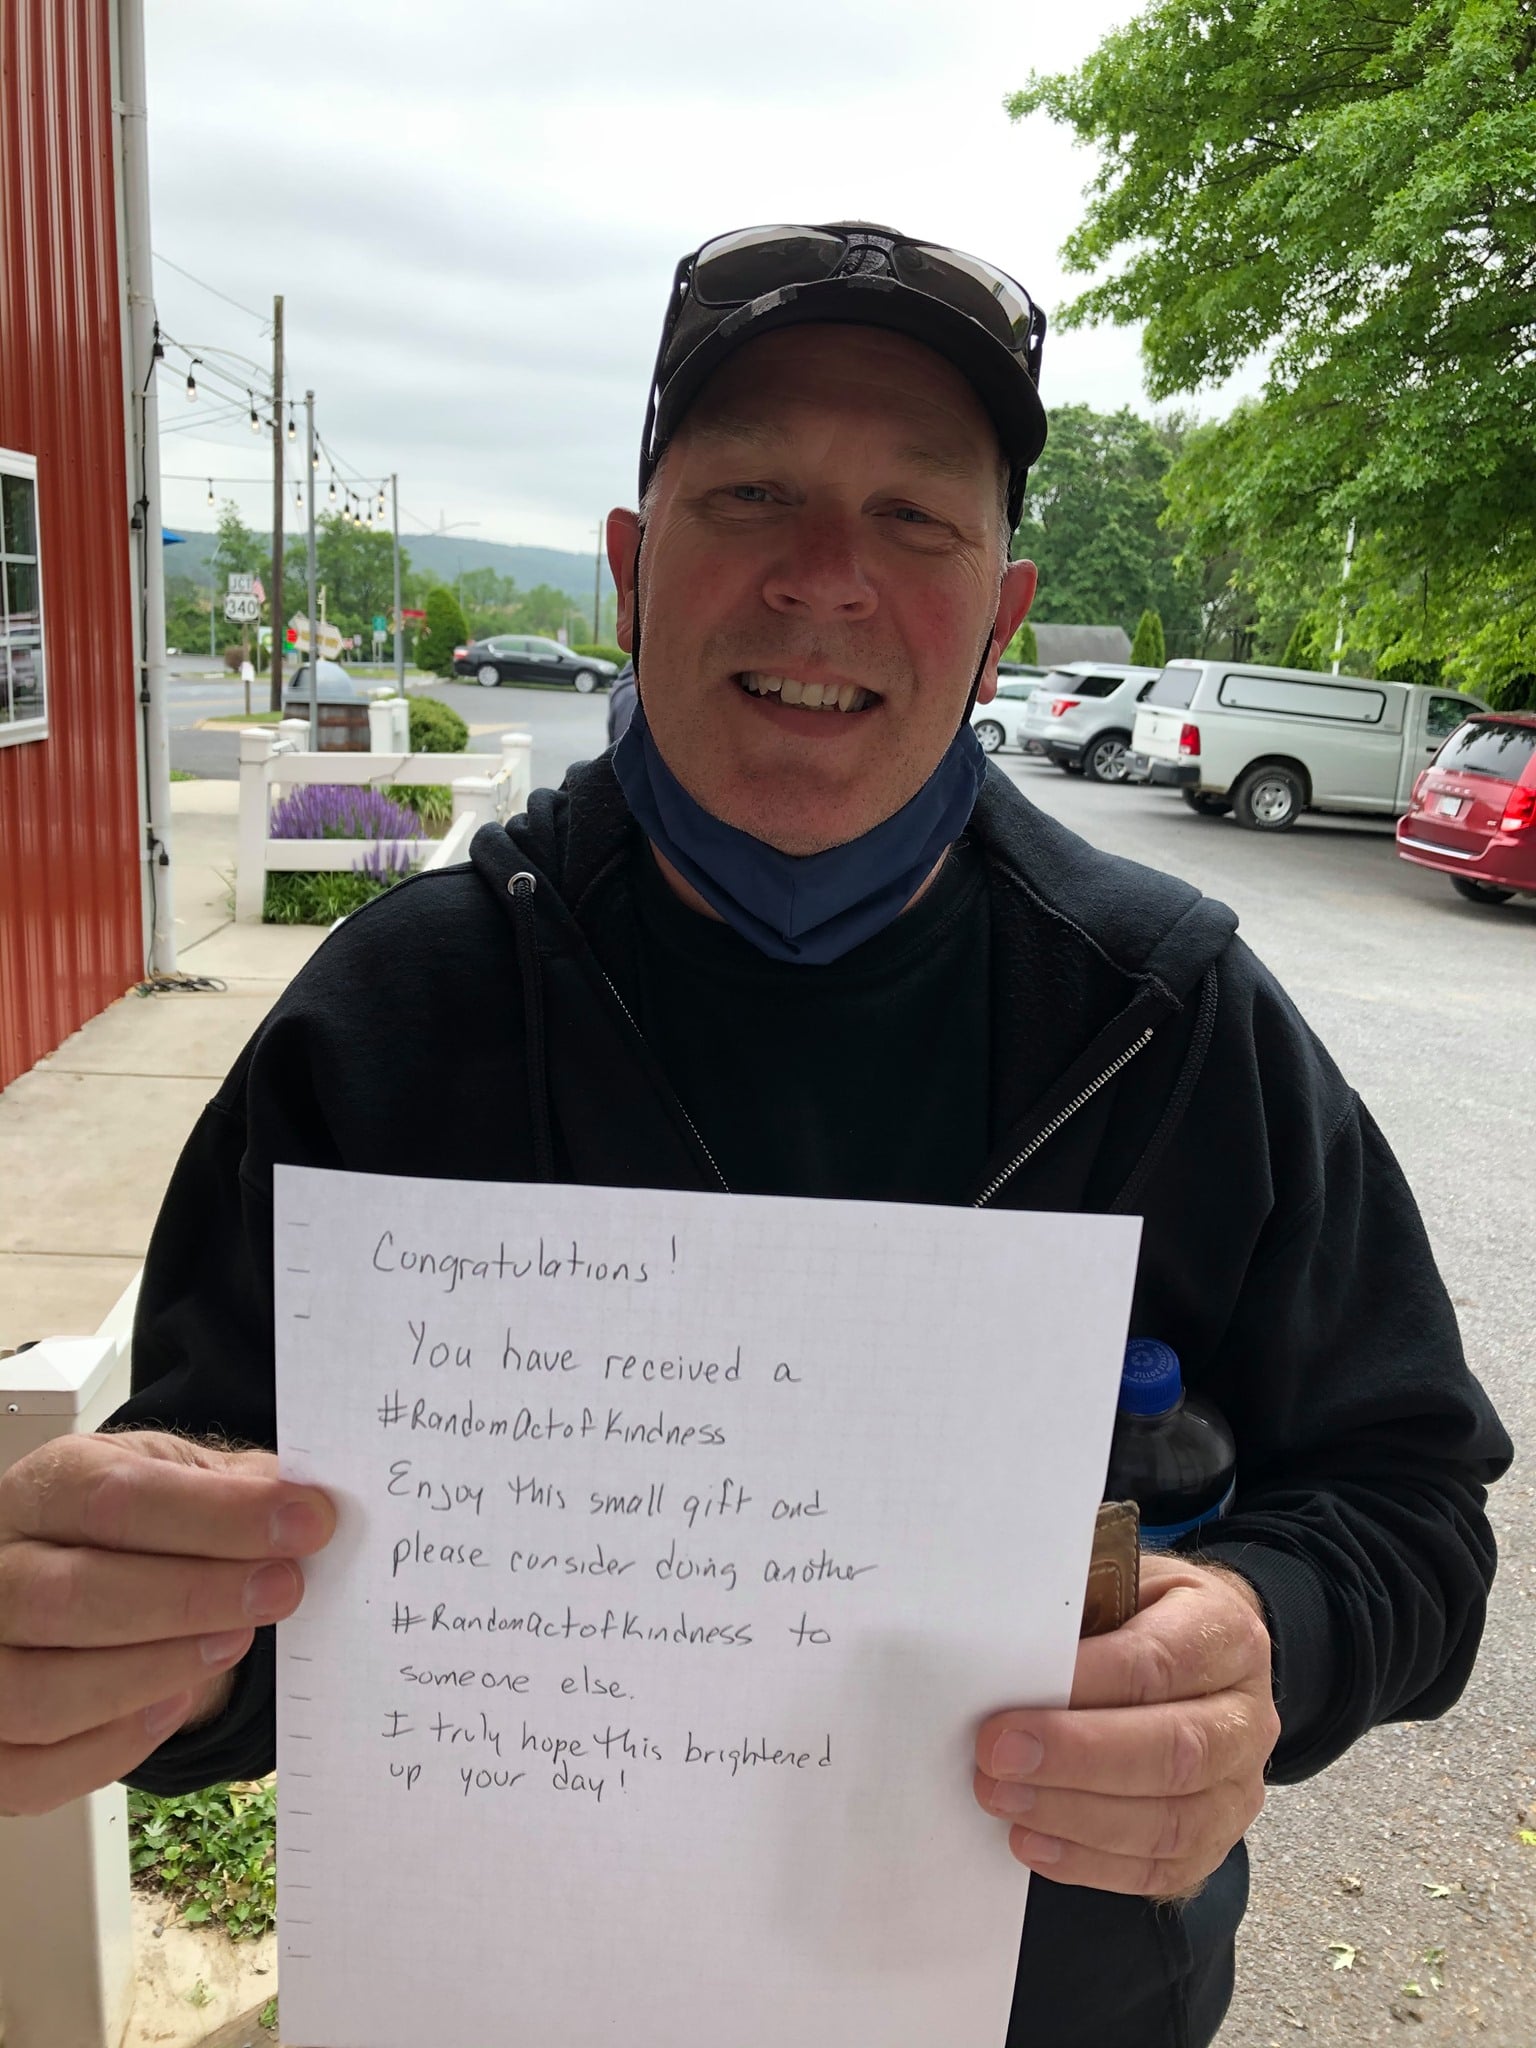 JCT
340
Congratulations!
You have received a
#RandomActofKindness
Enjoy this small gift and
please consider doing another
#RandomActofKindness to
someone else.
I truly hope this brightened
up your day!